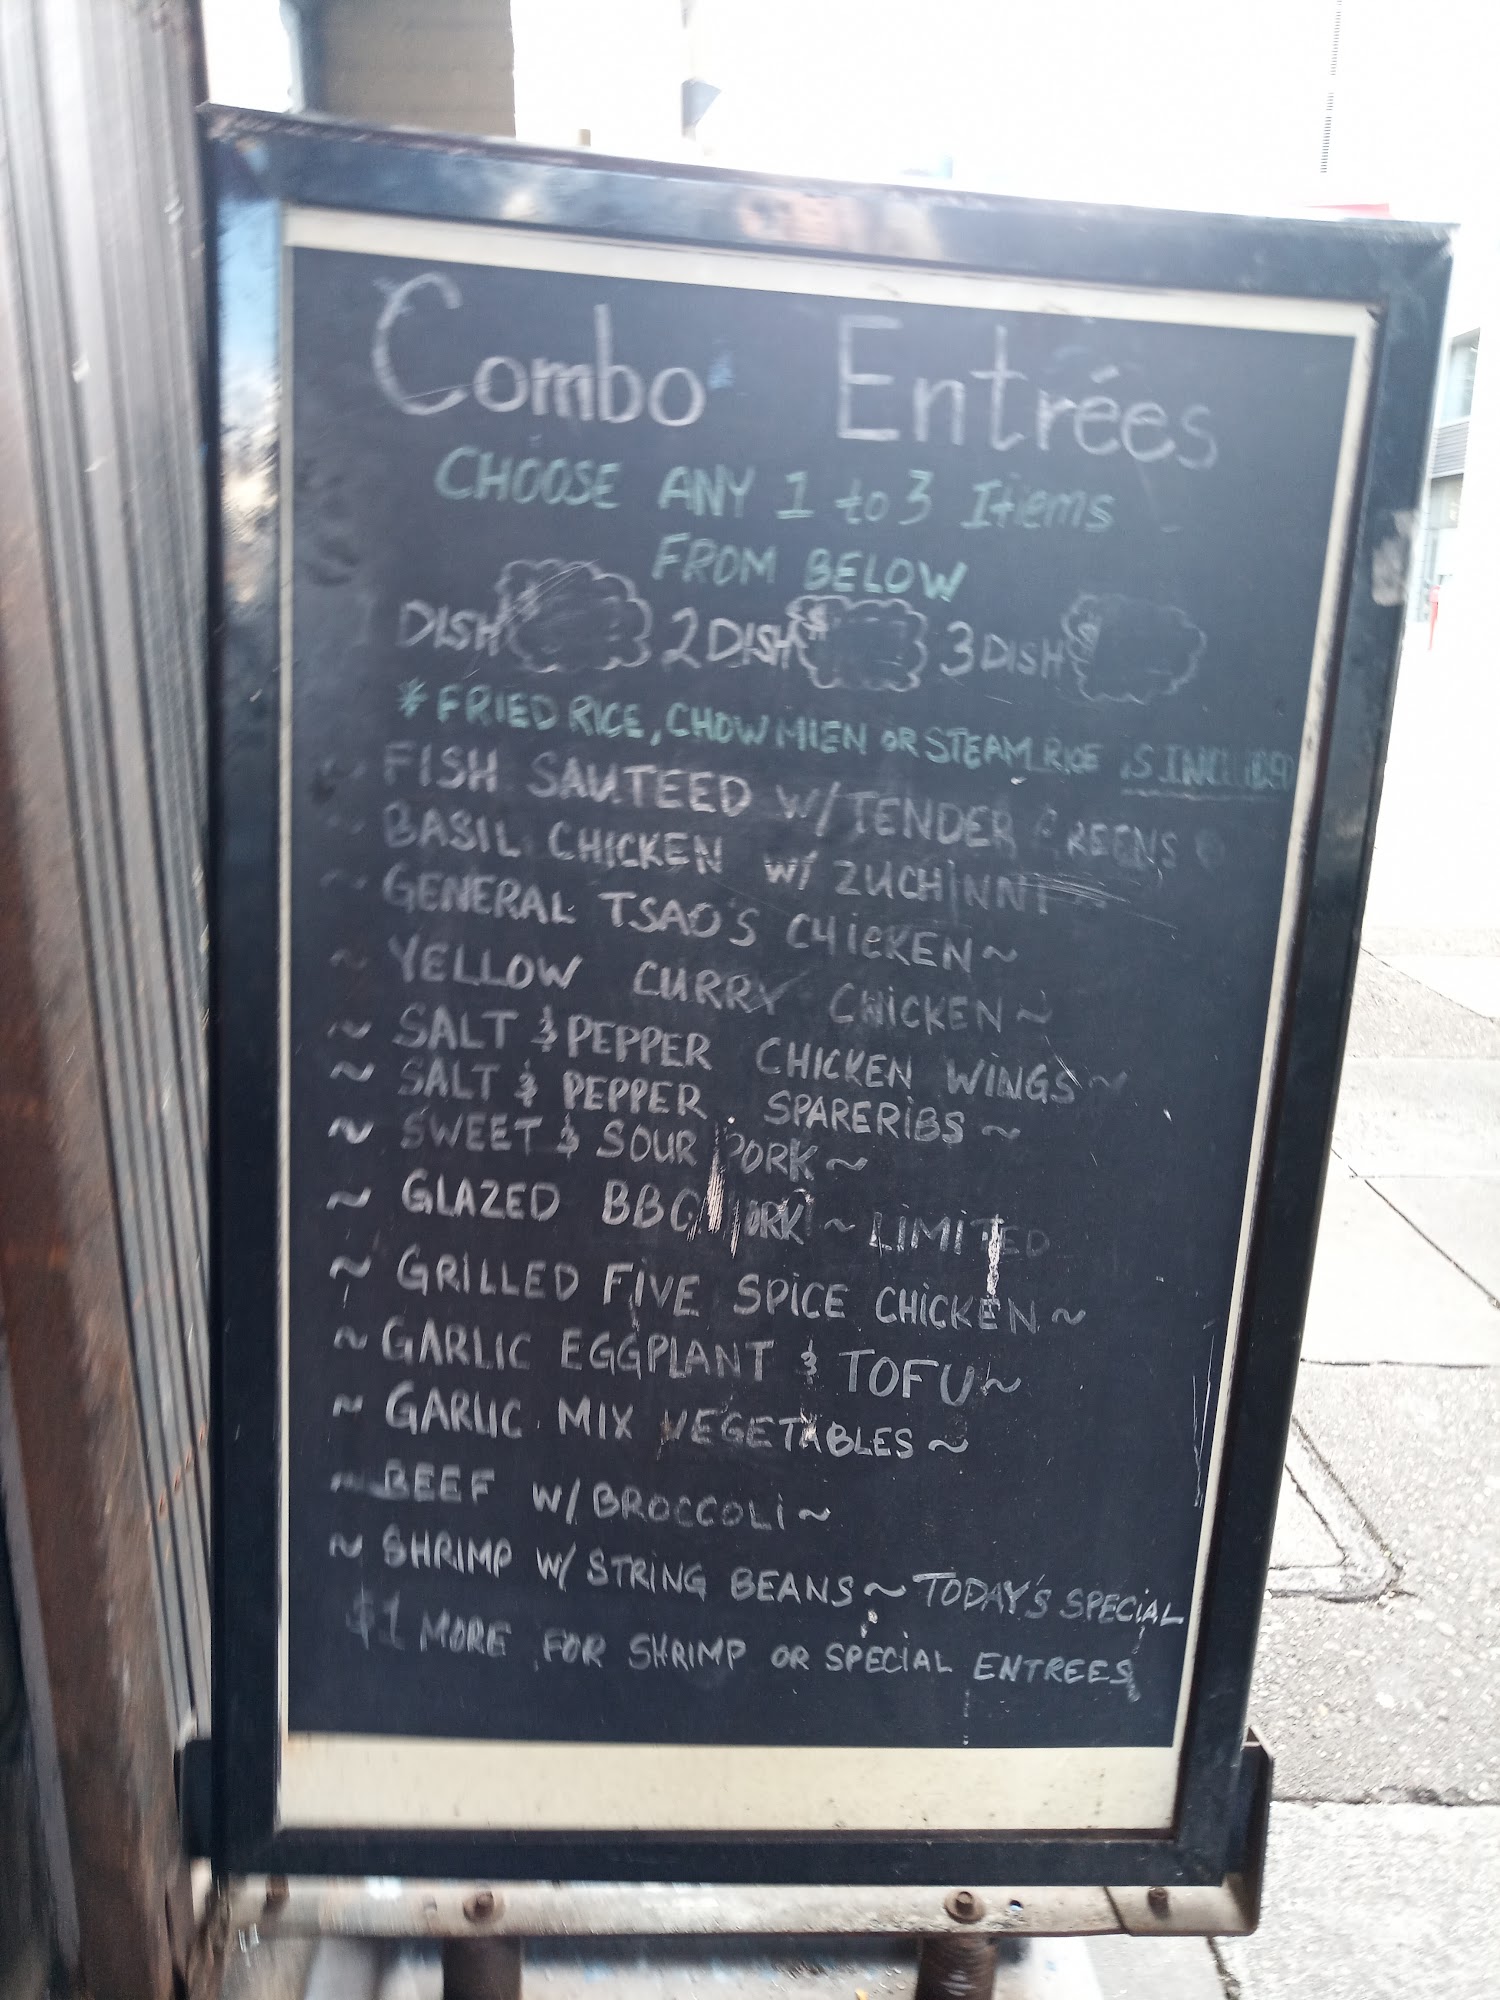 Combo Entrées
CHOOSE ANY 1 to 3 Items
FROM BELOW
DISH $ 2 DISH $ 3 DISH $
* FRIED RICE, CHOW MIEN OR STEAM RICE IS INCLUDED
FISH SAUTEED W/ TENDER GREENS
BASIL CHICKEN W/ ZUCHINNI
GENERAL TSAO'S CHICKEN ~
~ YELLOW CURRY CHICKEN ~
~ SALT & PEPPER CHICKEN WINGS ~
~ SALT & PEPPER SPARERIBS ~
~ SWEET & SOUR PORK ~
~ GLAZED BBQ PORK ~ LIMITED
~ GRILLED FIVE SPICE CHICKEN ~
~ GARLIC EGGPLANT & TOFU ~
~ GARLIC MIX VEGETABLES ~
~ BEEF W/ BROCCOLI ~
~ SHRIMP W/ STRING BEANS ~ TODAY'S SPECIAL
$1 MORE FOR SHRIMP OR SPECIAL ENTREES